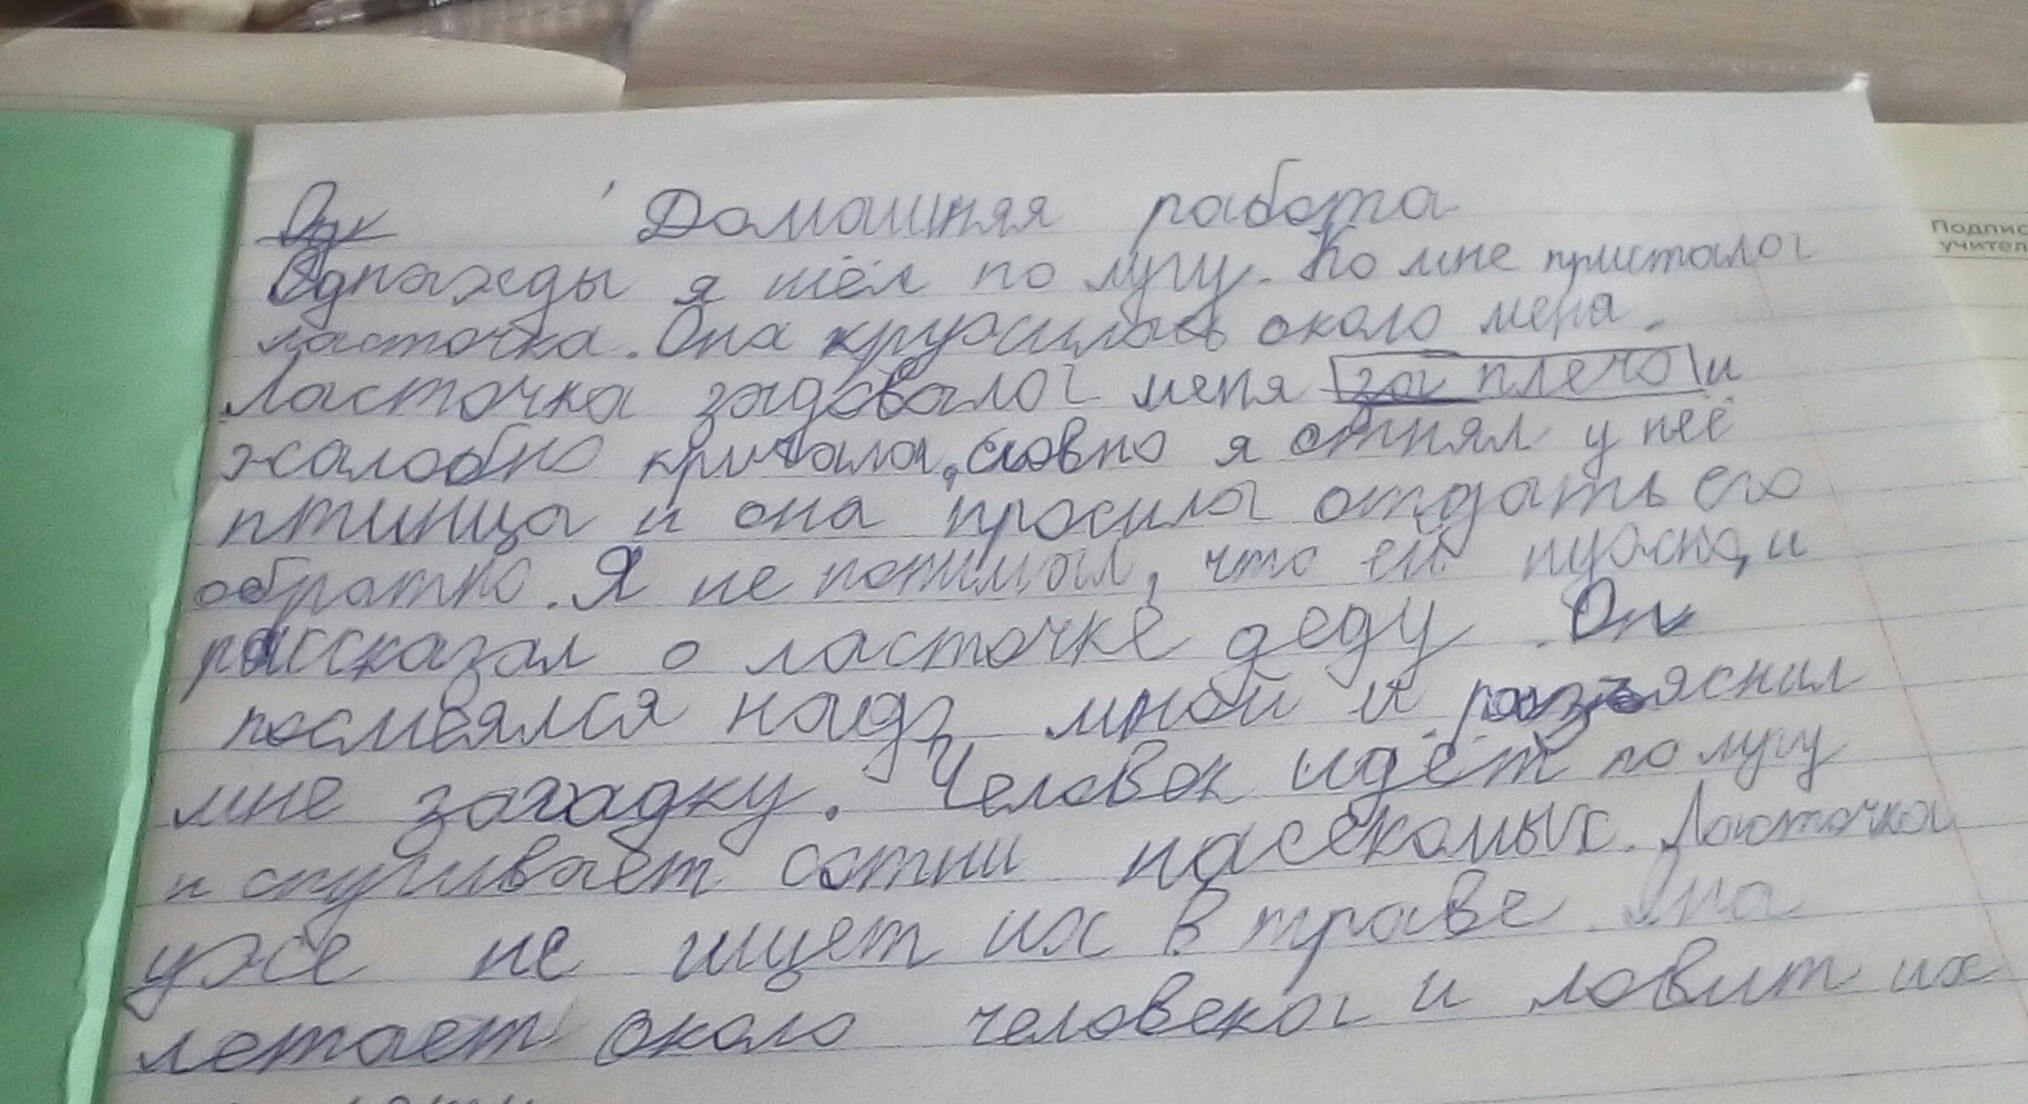 Домашняя работа
Однажды я шёл по лугу. Ко мне пристала
ласточка. Она кружилась около меня.
Ласточка задовала меня за плечо и
жалобно кричала, словно я отнял у неё
птинца и она просила отдать его
обратно. Я не понимал, что ей нужно, и
рассказал о ласточке деду. Он
посмеялся надо мной и разъяснил
мне загадку. Человек идёт по лугу
и спугивает сотни насекомых. Ласточка
уже не ищет их в траве. Она
летает около человека и ловит их
Подпис
учител